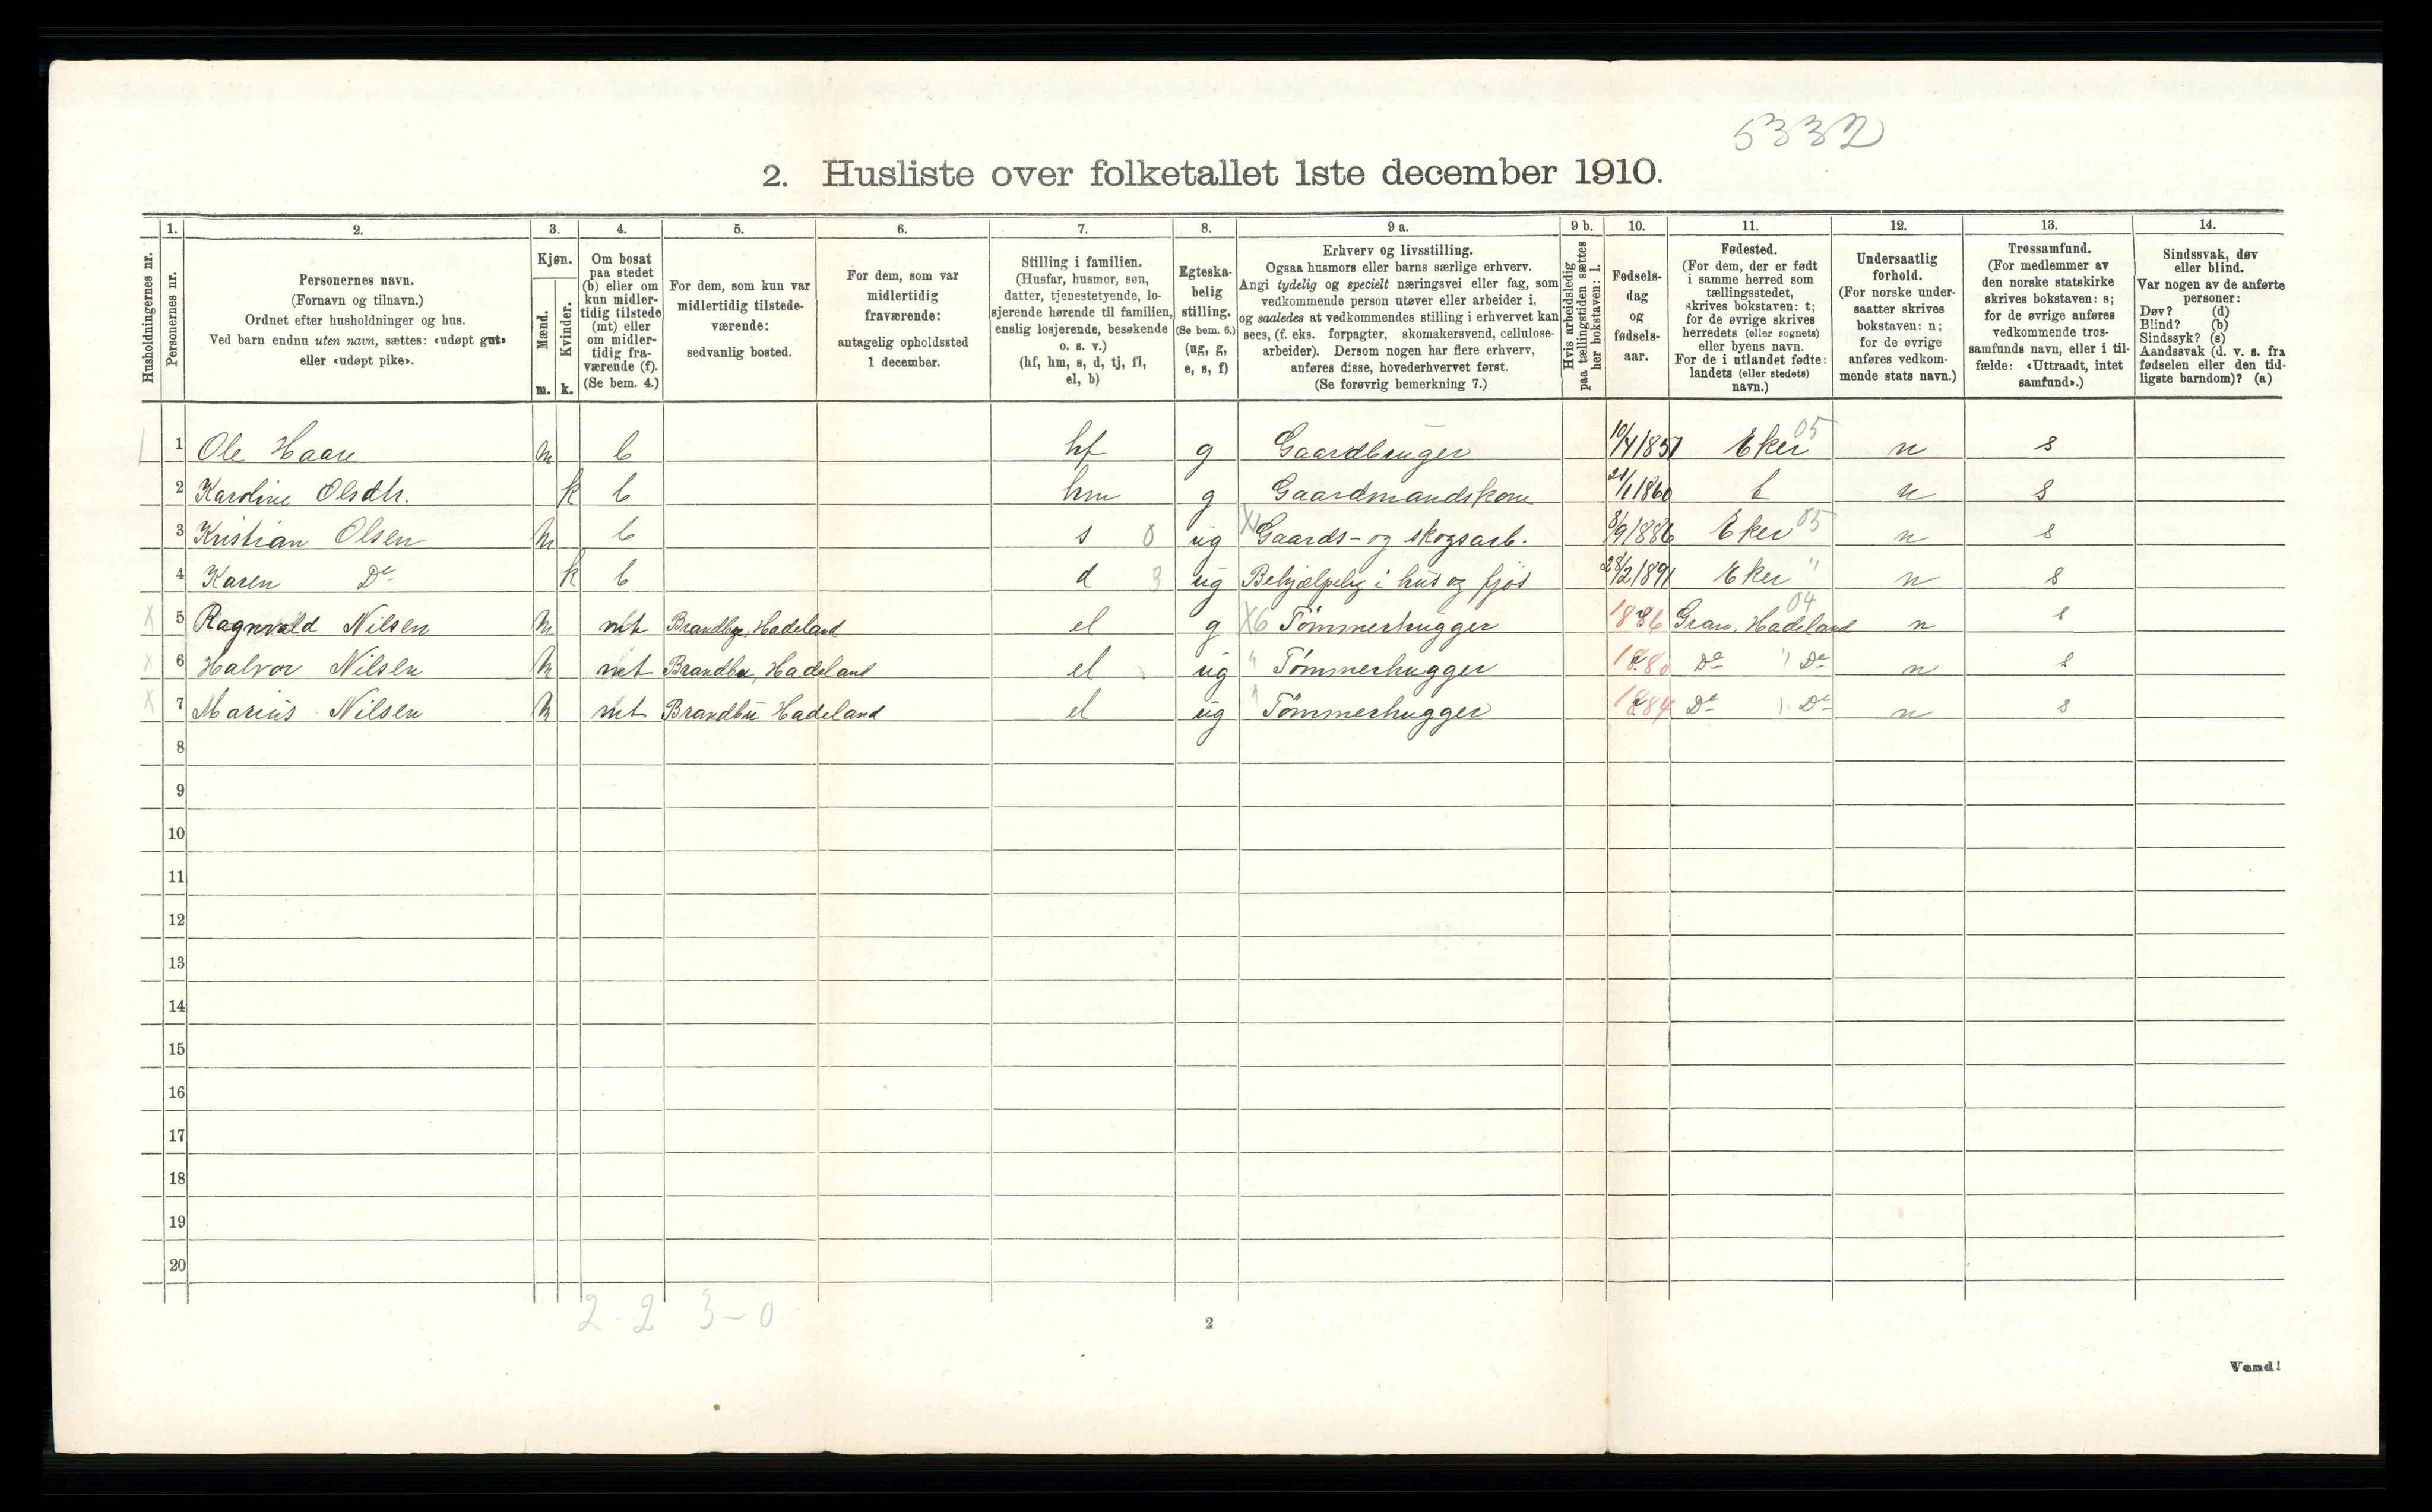 5332
2. Husliste over folketallet 1ste december 1910.
1. 2. 3. 4. 5. 6. 7. 8. 9 a. 9 b. 10. 11. 12. 13. 14.
Husholdningernes nr.
Personernes nr.
Personernes navn.
(Fornavn og tilnavn.)
Ordnet efter husholdninger og hus.
Ved barn endnu uten navn, sættes: «udøpt gut»
eller «udøpt pike».
Kjøn.
Mænd.
Kvinder.
m. k.
Om bosat
paa stedet
(b) eller om
kun midler-
tidig tilstede
(mt) eller
om midler-
tidig fra-
værende (f).
(Se bem. 4.)
For dem, som kun var
midlertidig tilstede-
værende:
sedvanlig bosted.
For dem, som var
midlertidig
fraværende:
antagelig opholdssted
1 december.
Stilling i familien.
(Husfar, husmor, søn,
datter, tjenestetyende, lo-
sjerende hørende til familien,
enslig losjerende, besøkende
o. s. v.)
(hf, hm, s, d, tj, fl,
el, b)
Egteska-
belig
stilling.
(Se bem. 6.)
(ug, g,
e, s, f)
Erhverv og livsstilling.
Ogsaa husmors eller barns særlige erhverv.
Angi tydelig og specielt næringsvei eller fag, som
vedkommende person utøver eller arbeider i,
og saaledes at vedkommendes stilling i erhvervet kan
sees, (f. eks. forpagter, skomakersvend, cellulose-
arbeider). Dersom nogen har flere erhverv,
anføres disse, hovederhvervet først.
(Se forøvrig bemerkning 7.)
Hvis arbeidsledig
paa tællingstiden sættes
her bokstaven: l.
Fødsels-
dag
og
fødsels-
aar.
Fødested.
(For dem, der er født
i samme herred som
tællingsstedet,
skrives bokstaven: t;
for de øvrige skrives
herredets (eller sognets)
eller byens navn.
For de i utlandet fødte:
landets (eller stedets)
navn.)
Undersaatlig
forhold.
(For norske under-
saatter skrives
bokstaven: n;
for de øvrige
anføres vedkom-
mende stats navn.)
Trossamfund.
(For medlemmer av
den norske statskirke
skrives bokstaven: s;
for de øvrige anføres
vedkommende tros-
samfunds navn, eller i til-
fælde: «Uttraadt, intet
samfund».)
Sindssvak, døv
eller blind.
Var nogen av de anførte
personer:
Døv? (d)
Blind? (b)
Sindssyk? (s)
Aandssvak (d. v. s. fra
fødselen eller den tid-
ligste barndom)? (a)
1 Ole Haare m b hf g Gaardbruger 10/4 1851 Eker 05 n s
2 Karoline Olsdtr. k b hm g Gaardmandskone 21/1 1860 t n s
3 Kristian Olsen m b s 0 ug Gaards- og skogsarb. 8/9 1886 Eker 05 n s
4 Karen Do k b d 3 ug Behjælpelig i hus og fjøs 28/2 1891 Eker " n s
X 5 Ragnvald Nilsen m mt Brandbu, Hadeland el g X6 Tømmerhugger 1886 Gran, Hadeland 04 n s
X 6 Halvor Nilsen m mt Brandbu, Hadeland el ug " Tømmerhugger 1880 Do " Do n s
X 7 Marius Nilsen m mt Brandbu Hadeland el ug " Tømmerhugger 1884 Do " Do n s
8
9
10
11
12
13
14
15
16
17
18
19
20
2-2 3-0
2
Vend!